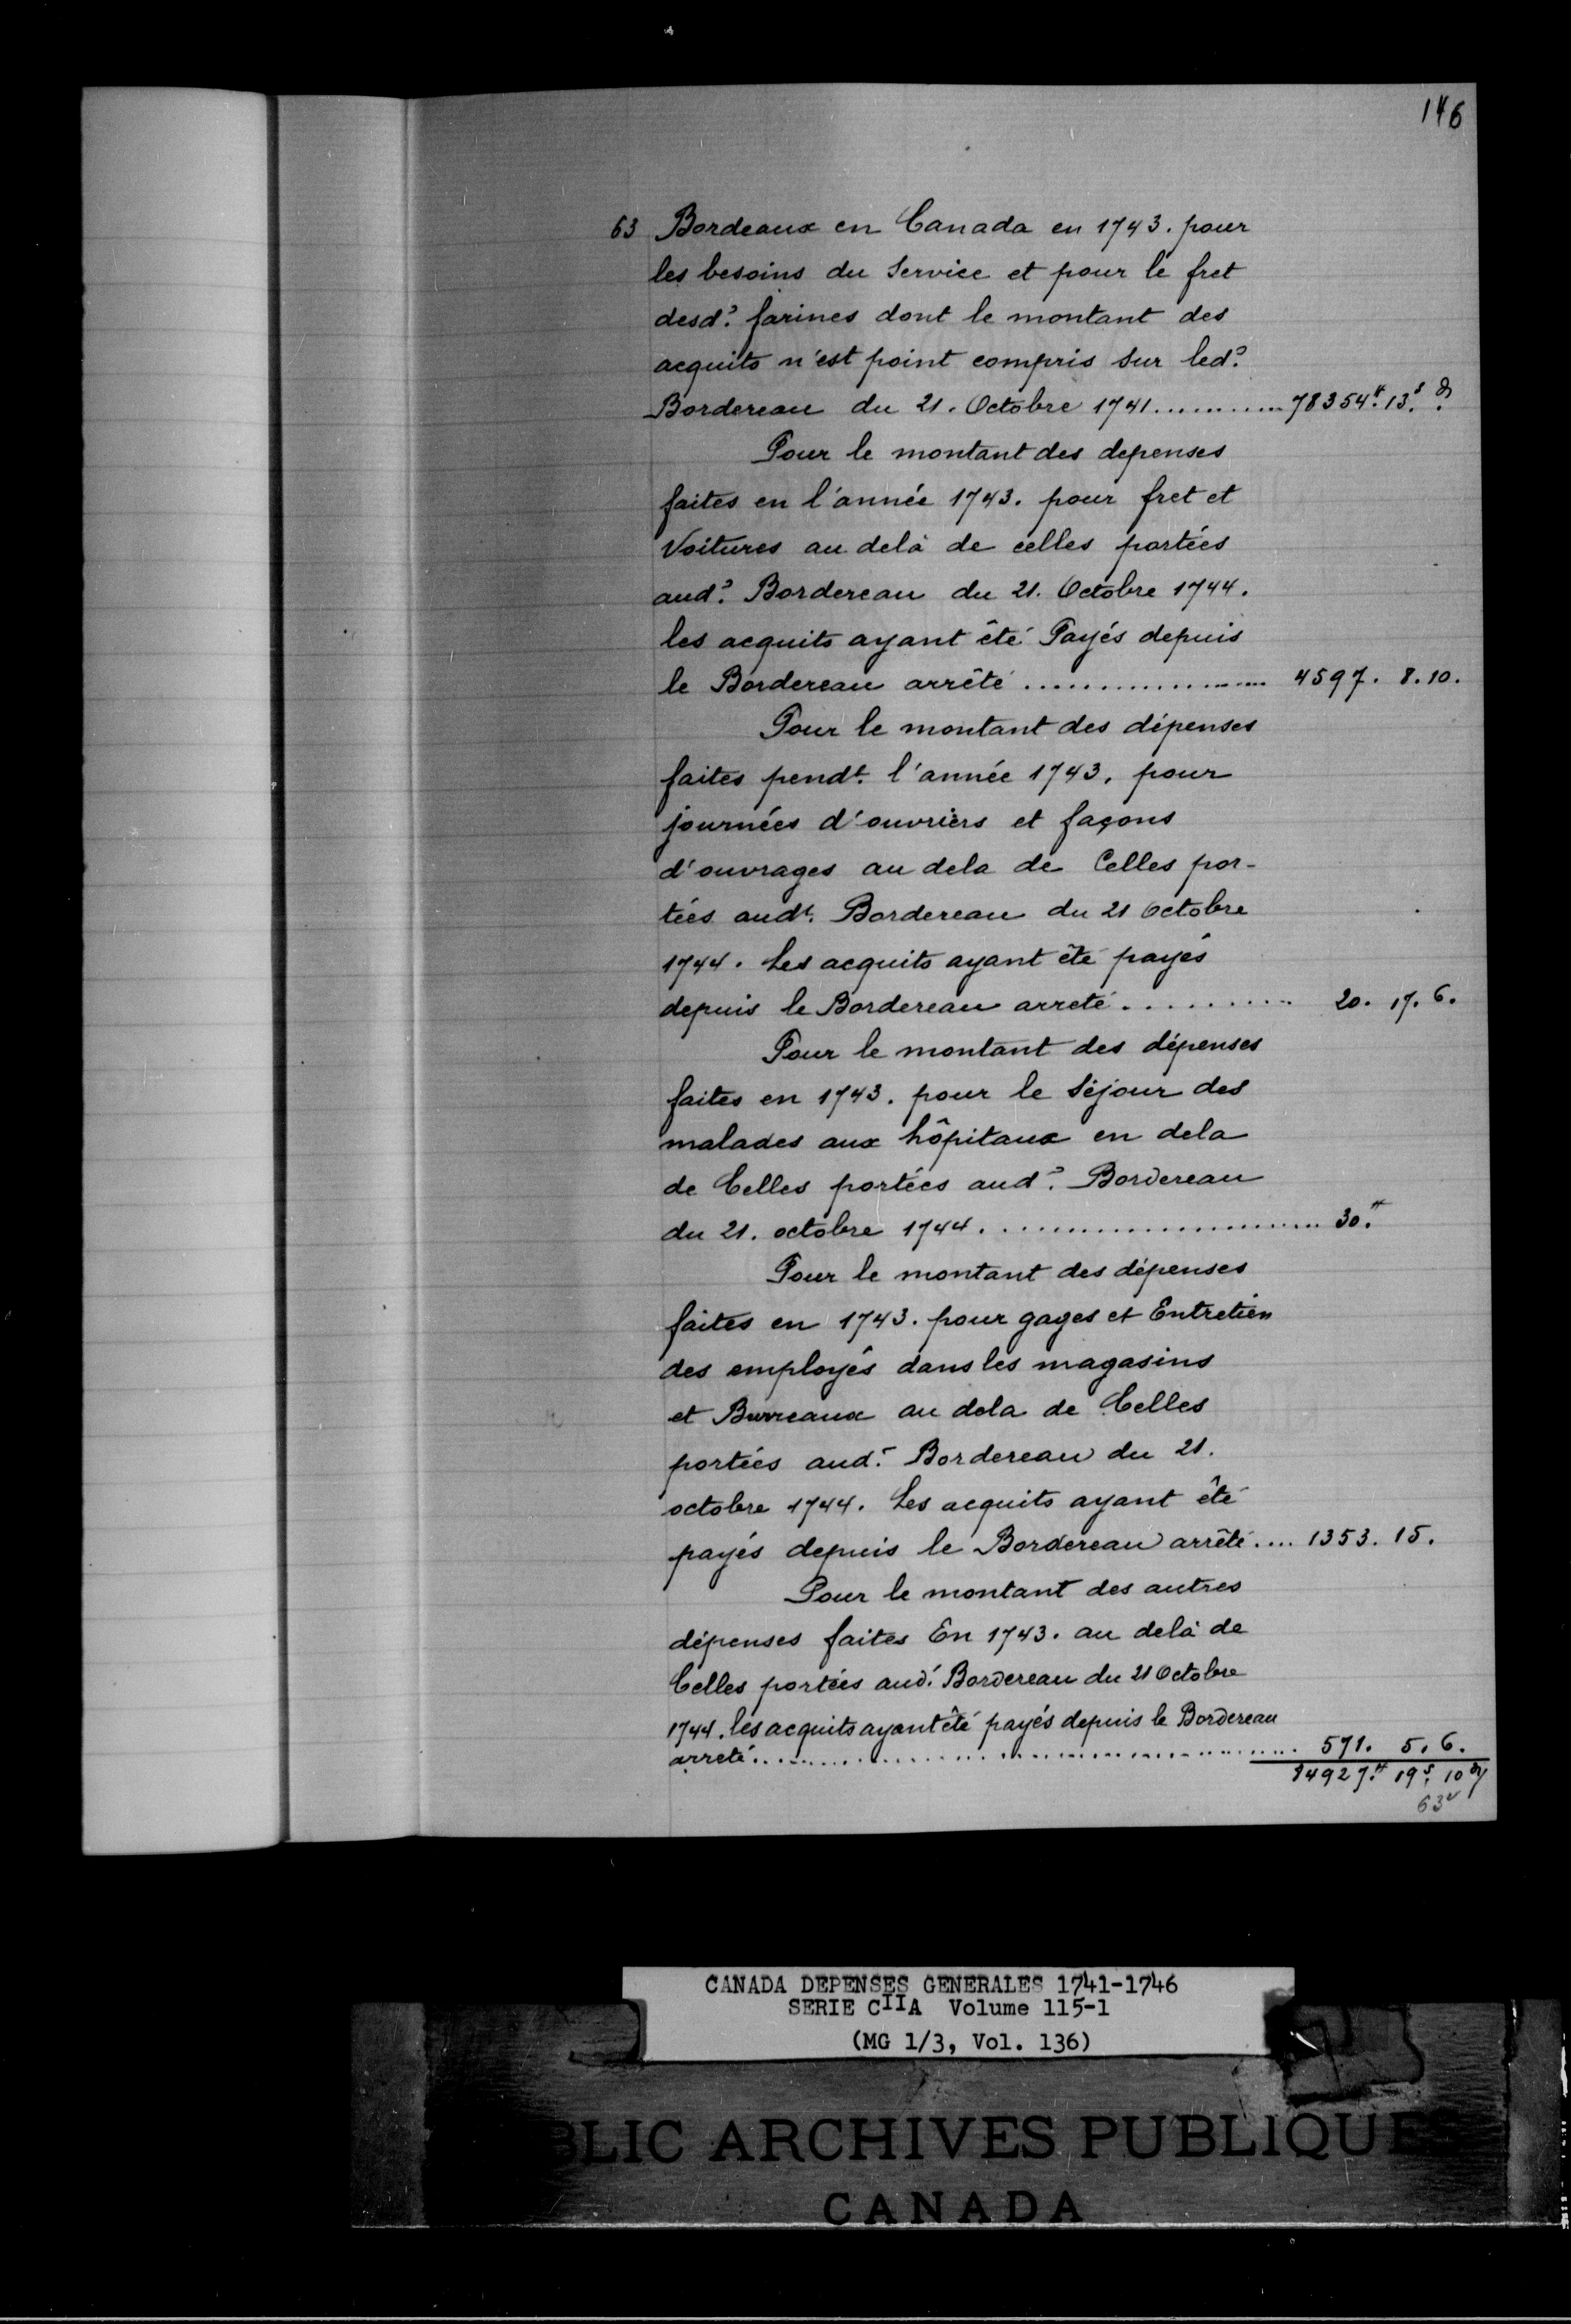 146
63 Bordeaux en Canada en 1743. pour
les besoins du Service et pour le fret
desd? farines dont le montant des
acquits n'est point compris sur led?
Bordereau du 21. Octobre 1741............78354#. 13s. d
Pour le montant des depenses
faites en l'année 1743. pour fret et
Voitures au delà de celles portées
aud? Bordereau du 21. Octobre 1744.
les acquits ayant êté Payés depuis
le Bordereau arrêté .................... 4597. 8. 10.
Pour le montant des dépenses
faites pendt. l'année 1743. pour
journées d'ouvriers et façons
d'ouvrages au dela de Celles por-
tées audt. Bordereau du 21 octobre
1744. Les acquits ayant êté payés
depuis le Bordereau arreté .......... 20. 17. 6.
Pour le montant des dépenses
faites en 1743. pour le Séjour des
malades aux hôpitaux en dela
de Celles portées aud? Bordereau
du 21. octobre 1744. .................... 30.#
Pour le montant des dépenses
faites en 1743. pour gages et Entretien
des employés dans les magasins
et Burreaux au dela de Celles
portées aud. Bordereau du 21.
octobre 1744. Les acquits ayant êté
payés depuis le Bordereau arrêté .... 1353. 15.
Pour le montant des autres
dépenses faites En 1743. au delà de
Celles portées aud. Bordereau du 21 Octobre
1744. les acquits ayant êté payés depuis le Bordereau
arreté........................................ 571. 5. 6.
84927.# 19s. 10d
63v
CANADA DEPENSES GENERALES 1741-1746
SERIE CIIA Volume 115-1
(MG 1/3, Vol. 136)
BLIC ARCHIVES PUBLIQUES
CANADA